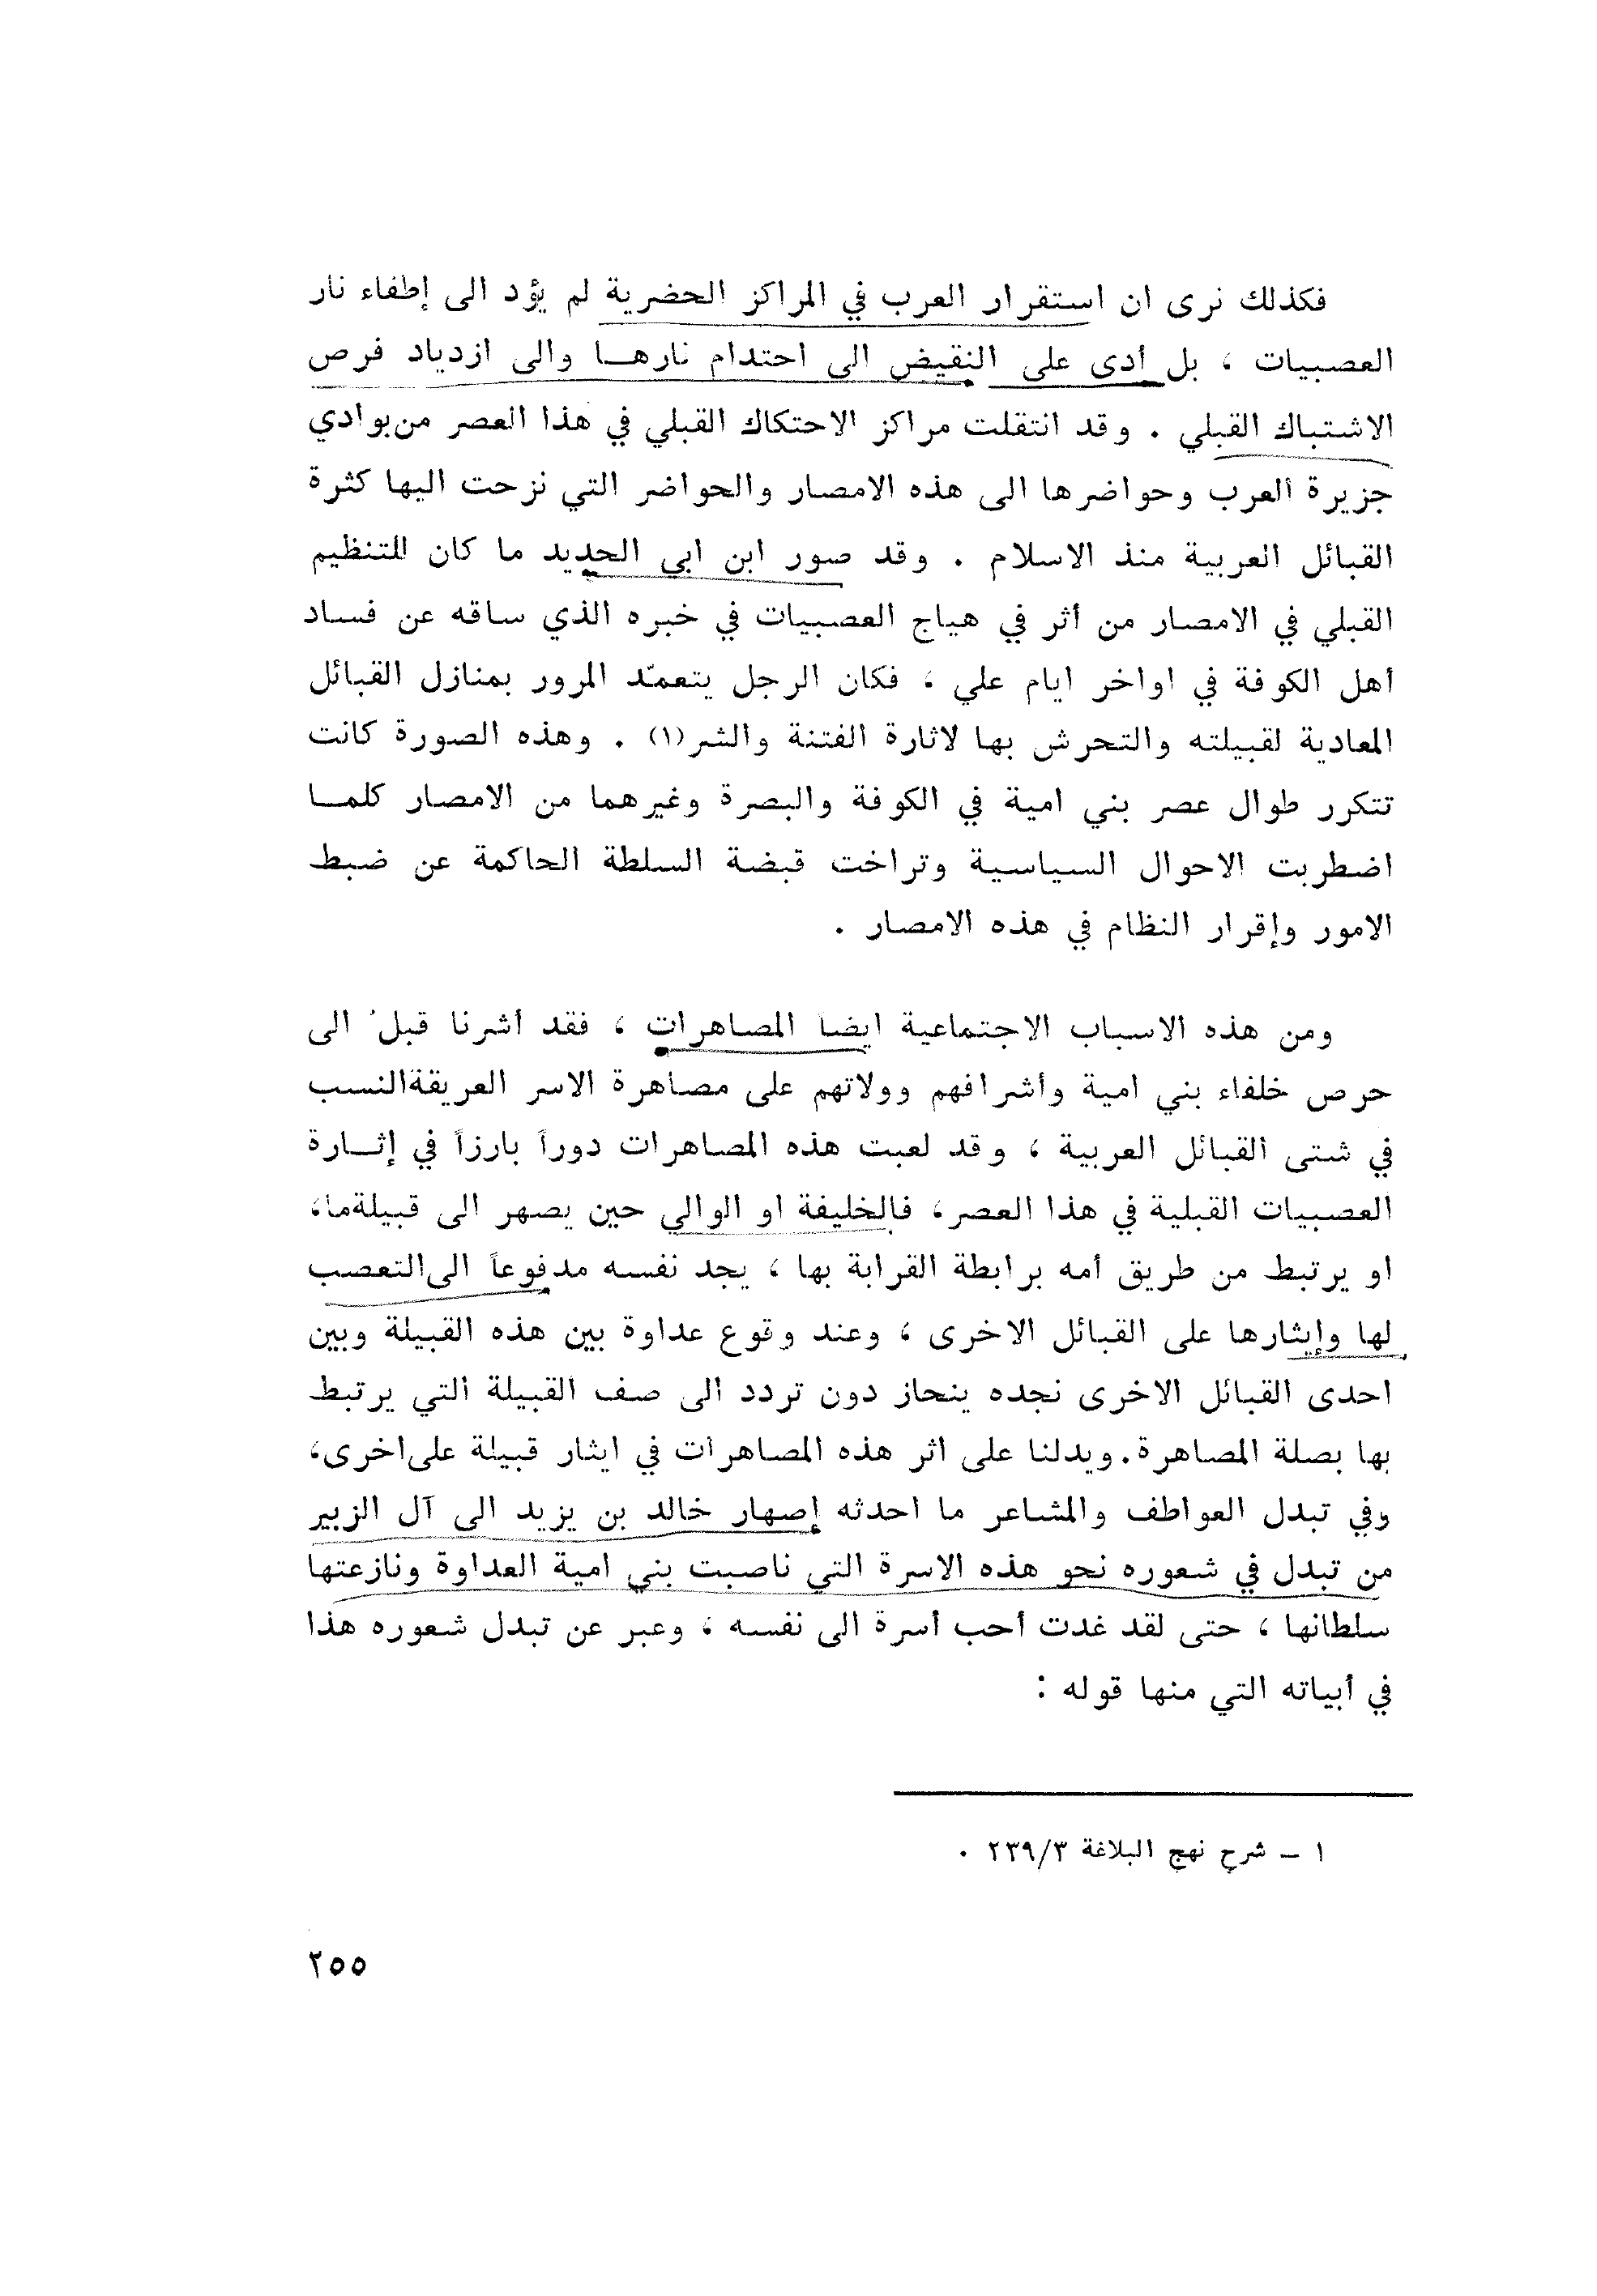 فكذلك نرى ان استقرار العرب في المراكز الحضرية لم يؤد الى إطفاء نار
العصبيات ، بل أدى على النقيض الى احتدام نارهـــا والى ازدياد فرص
الاشتباك القبلي . وقد انتقلت مراكز الاحتكاك القبلي في هذا العصر من بوادي
جزيرة العرب وحواضرها الى هذه الامصار والحواضر التي نزحت اليها كثرة
القبائل العربية منذ الاسلام . وقد صور ابن ابي الحديد ما كان للتنظيم
القبلي في الامصار من أثر في هياج العصبيات في خبره الذي ساقه عن فساد
أهل الكوفة في اواخر ايام علي ، فكان الرجل يتعمّد المرور بمنازل القبائل
المعادية لقبيلته والتحرش بها لاثارة الفتنة والشر(١) . وهذه الصورة كانت
تتكرر طوال عصر بني امية في الكوفة والبصرة وغيرهما من الامصار كلمـــا
اضطربت الاحوال السياسية وتراخت قبضة السلطة الحاكمة عن ضبط
الامور وإقرار النظام في هذه الامصار .
ومن هذه الاسباب الاجتماعية ايضا المصاهرات ، فقد أشرنا قبلُ الى
حرص خلفاء بني امية وأشرافهم وولاتهم على مصاهرة الاسر العريقة النسب
في شتى القبائل العربية ، وقد لعبت هذه المصاهرات دوراً بارزاً في إثـــارة
العصبيات القبلية في هذا العصر، فالخليفة او الوالي حين يصهر الى قبيلة ما،
او يرتبط من طريق أمه برابطة القرابة بها ، يجد نفسه مدفوعاً الى التعصب
لها وإيثارها على القبائل الاخرى ، وعند وقوع عداوة بين هذه القبيلة وبين
احدى القبائل الاخرى نجده ينحاز دون تردد الى صف القبيلة التي يرتبط
بها بصلة المصاهرة. ويدلنا على اثر هذه المصاهرات في ايثار قبيلة على اخرى،
وفي تبدل العواطف والمشاعر ما احدثه إصهار خالد بن يزيد الى آل الزبير
من تبدل في شعوره نحو هذه الاسرة التي ناصبت بني امية العداوة ونازعتها
سلطانها ، حتى لقد غدت أحب أسرة الى نفسه ، وعبر عن تبدل شعوره هذا
في أبياته التي منها قوله :
١ – شرح نهج البلاغة ٢٣٩/٣ .
٢٥٥